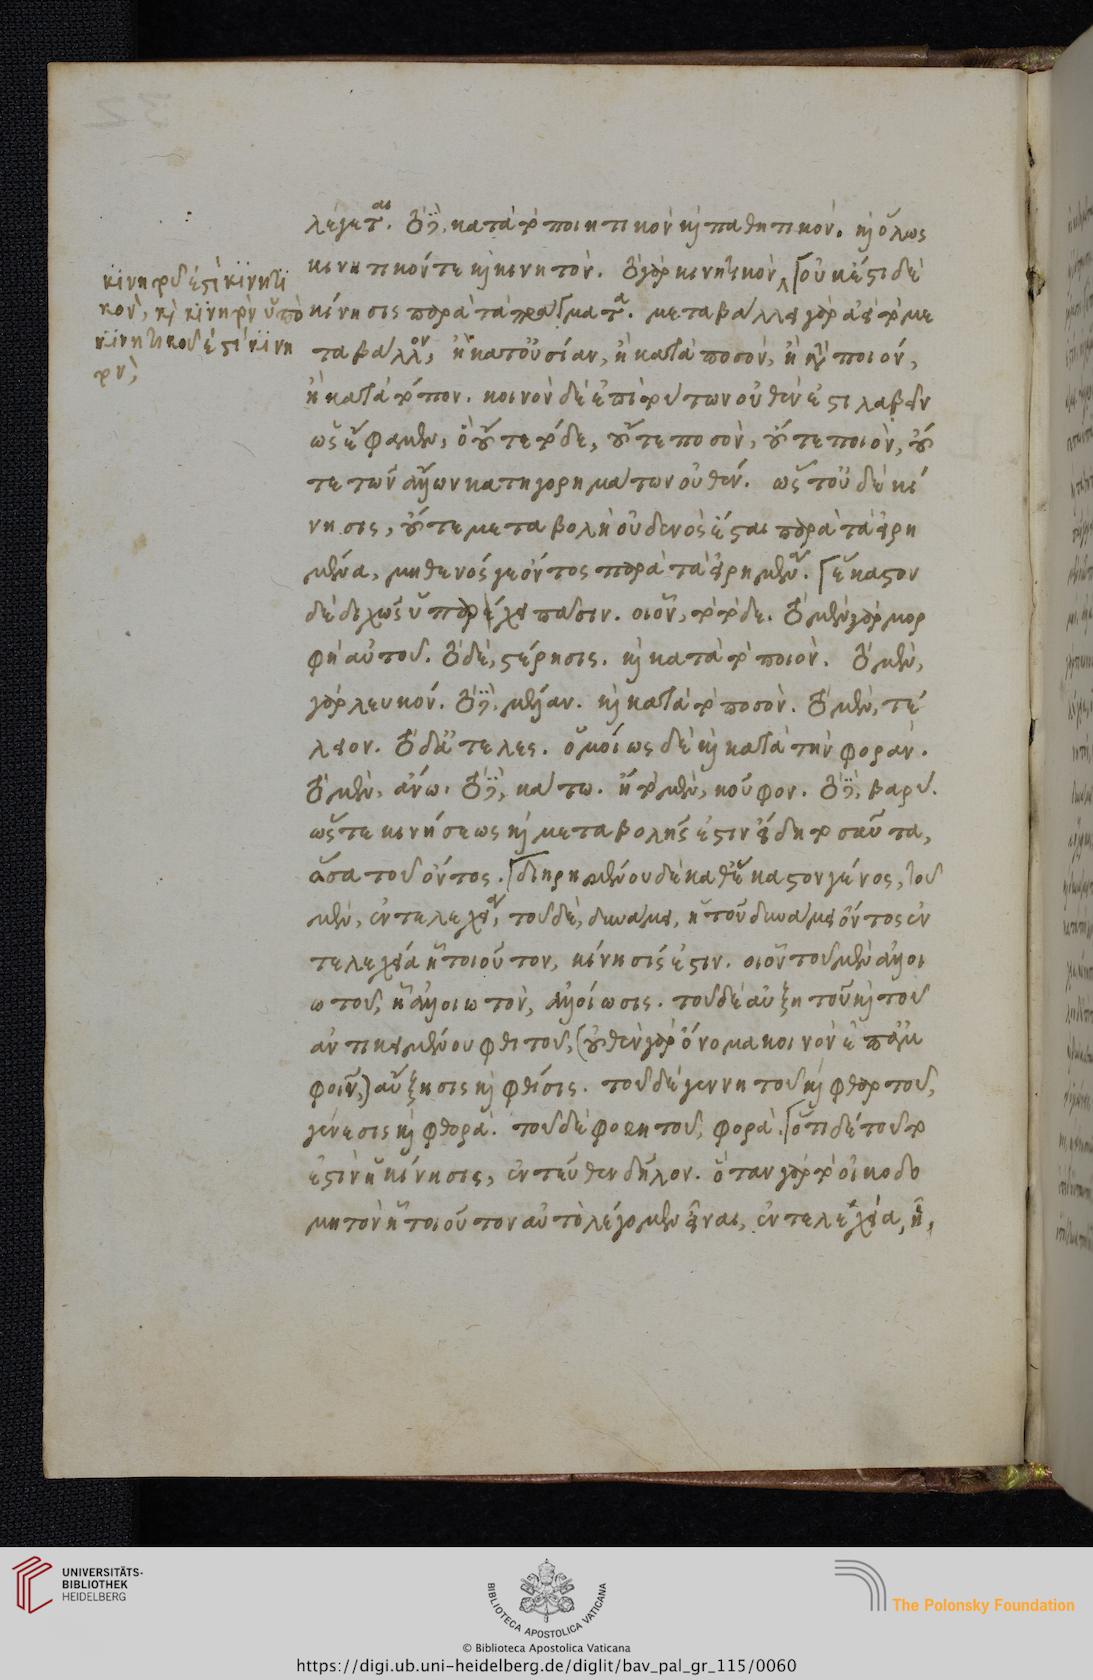 λέγεται. τὸ δὲ, κατὰ τὸ ποιητικὸν καὶ παθητικὸν. καὶ ὅλως
κινητικόν τε καὶ κινητόν. τὸ γὰρ κινητικὸν, οὐκ ἔστι δὲ
κίνησις παρὰ τὰ πράγματα. μεταβάλλει γὰρ ἀεὶ τὸ με
ταβάλλον, ἢ κατ' οὐσίαν, ἢ κατὰ ποσόν, ἢ κατὰ ποιόν,
ἢ κατὰ τόπον. κοινὸν δὲ ἐπὶ τούτων οὐθέν ἐστι λαβεῖν
ὥς φαμεν, ὃ οὔτε τόδε, οὔτε ποσὸν, οὔτε ποιὸν, οὔ
τε τῶν ἄλλων κατηγορημάτων οὐθέν. ὥστ' οὐδὲ κί
νησις, οὔτε μεταβολὴ οὐδενὸς ἔσται παρὰ τὰ εἰρη
μένα, μηθενός γε ὄντος παρὰ τὰ εἰρημένα. ἕκαστον
δὲ διχῶς ὑπάρχει πᾶσιν. οἷον, τὸ τόδε. τὸ μὲν γὰρ μορ
φὴ αὐτοῦ. τὸ δὲ, στέρησις. καὶ κατὰ τὸ ποιὸν. τὸ μὲν,
γὰρ λευκόν. τὸ δὲ, μέλαν. καὶ κατὰ τὸ ποσὸν. τὸ μὲν, τέ
λειον. τὸ δ' ἀτελές. ὁμοίως δὲ καὶ κατὰ τὴν φοράν.
τὸ μὲν, ἄνω. τὸ δὲ, κάτω. ἢ τὸ μὲν, κοῦφον. τὸ δὲ, βαρύ.
ὥστε κινήσεως καὶ μεταβολῆς ἐστιν εἴδη τοσαῦτα,
ὅσα τοῦ ὄντος. διῃρημένου δὲ καθ' ἕκαστον γένος, τοῦ
μὲν, ἐντελεχείᾳ, τοῦ δὲ, δυνάμει, ἡ τοῦ δυνάμει ὄντος ἐν
τελεχείᾳ ᾗ τοιοῦτον, κίνησίς ἐστιν. οἷον τοῦ μὲν ἀλλοι
ωτοῦ, ᾗ ἀλλοιωτὸν, ἀλλοίωσις. τοῦ δὲ αὐξητοῦ καὶ τοῦ
ἀντικειμένου φθιτοῦ, (οὐθὲν γὰρ ὄνομα κοινὸν ἐπ' ἀμ
φοῖν,) αὔξησις καὶ φθίσις. τοῦ δὲ γεννητοῦ καὶ φθαρτοῦ,
γένεσις καὶ φθορά. τοῦ δὲ φορητοῦ, φορά. ὅτι δὲ τοῦτο
ἐστὶν ἡ κίνησις, ἐντεῦθεν δῆλον. ὅταν γὰρ τὸ οἰκοδο
μητὸν ᾗ τοιοῦτον αὐτὸ λέγομεν εἶναι, ἐντελεχείᾳ, ᾖ,
κινητοῦ ἐστὶ κινητι
κὸν, καὶ κινητὸν ὑπὸ
κινητικοῦ ἐστὶ κινη
τὸν,
UNIVERSITÄTS-
BIBLIOTHEK
HEIDELBERG
BIBLIOTECA APOSTOLICA VATICANA
© Biblioteca Apostolica Vaticana
The Polonsky Foundation
https://digi.ub.uni-heidelberg.de/diglit/bav_pal_gr_115/0060